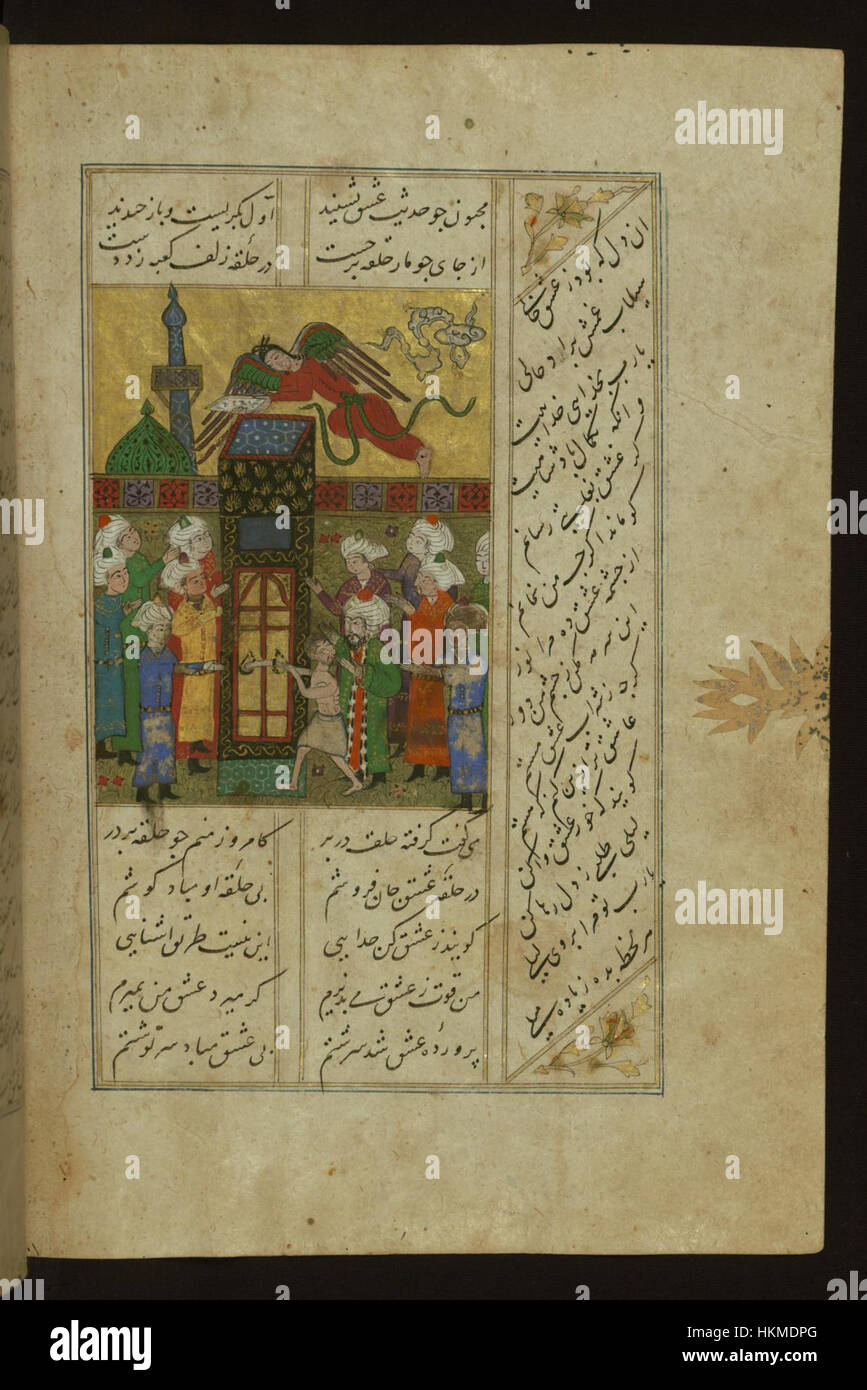 مجنون چو حدیث عشق بشنید اول بگریست و باز خندید
از جای چو مار حلقه برجست در حلقه زلف کعبه زد دست
می گفت گرفته حلقه در بر کامروز منم چو حلقه بر در
در حلقه عشق جان فروشم بی حلقه او مباد گوشم
گویند ز عشق کن جدایی این نیست طریق اشنایی
من قوت ز عشق می پذیرم گر میرد عشق من بمیرم
پرورده عشق شد سرشتم بی عشق مباد سرنوشتم
ان دل که بود ز عشق خالی
سیلاب غمش براد حالی
یارب بخدایی خداییت
وانگه بکمال پادشاییت
کز عشق بغایتی رسانم
کو ماند اگرچه من نمانم
از چشمه عشق ده مرا نور
این سرمه مکن ز چشم من دور
گرچه ز شراب عشق مستم
عاشق تر ازین کنم که هستم
گویند که خو ز عشق وا کن
لیلی طلبی ز دل رها کن
یارب تو مرا بروی لیلی
هر لحظه بده زیاده میلی
alamy
Image ID: HKMDPG
www.alamy.com